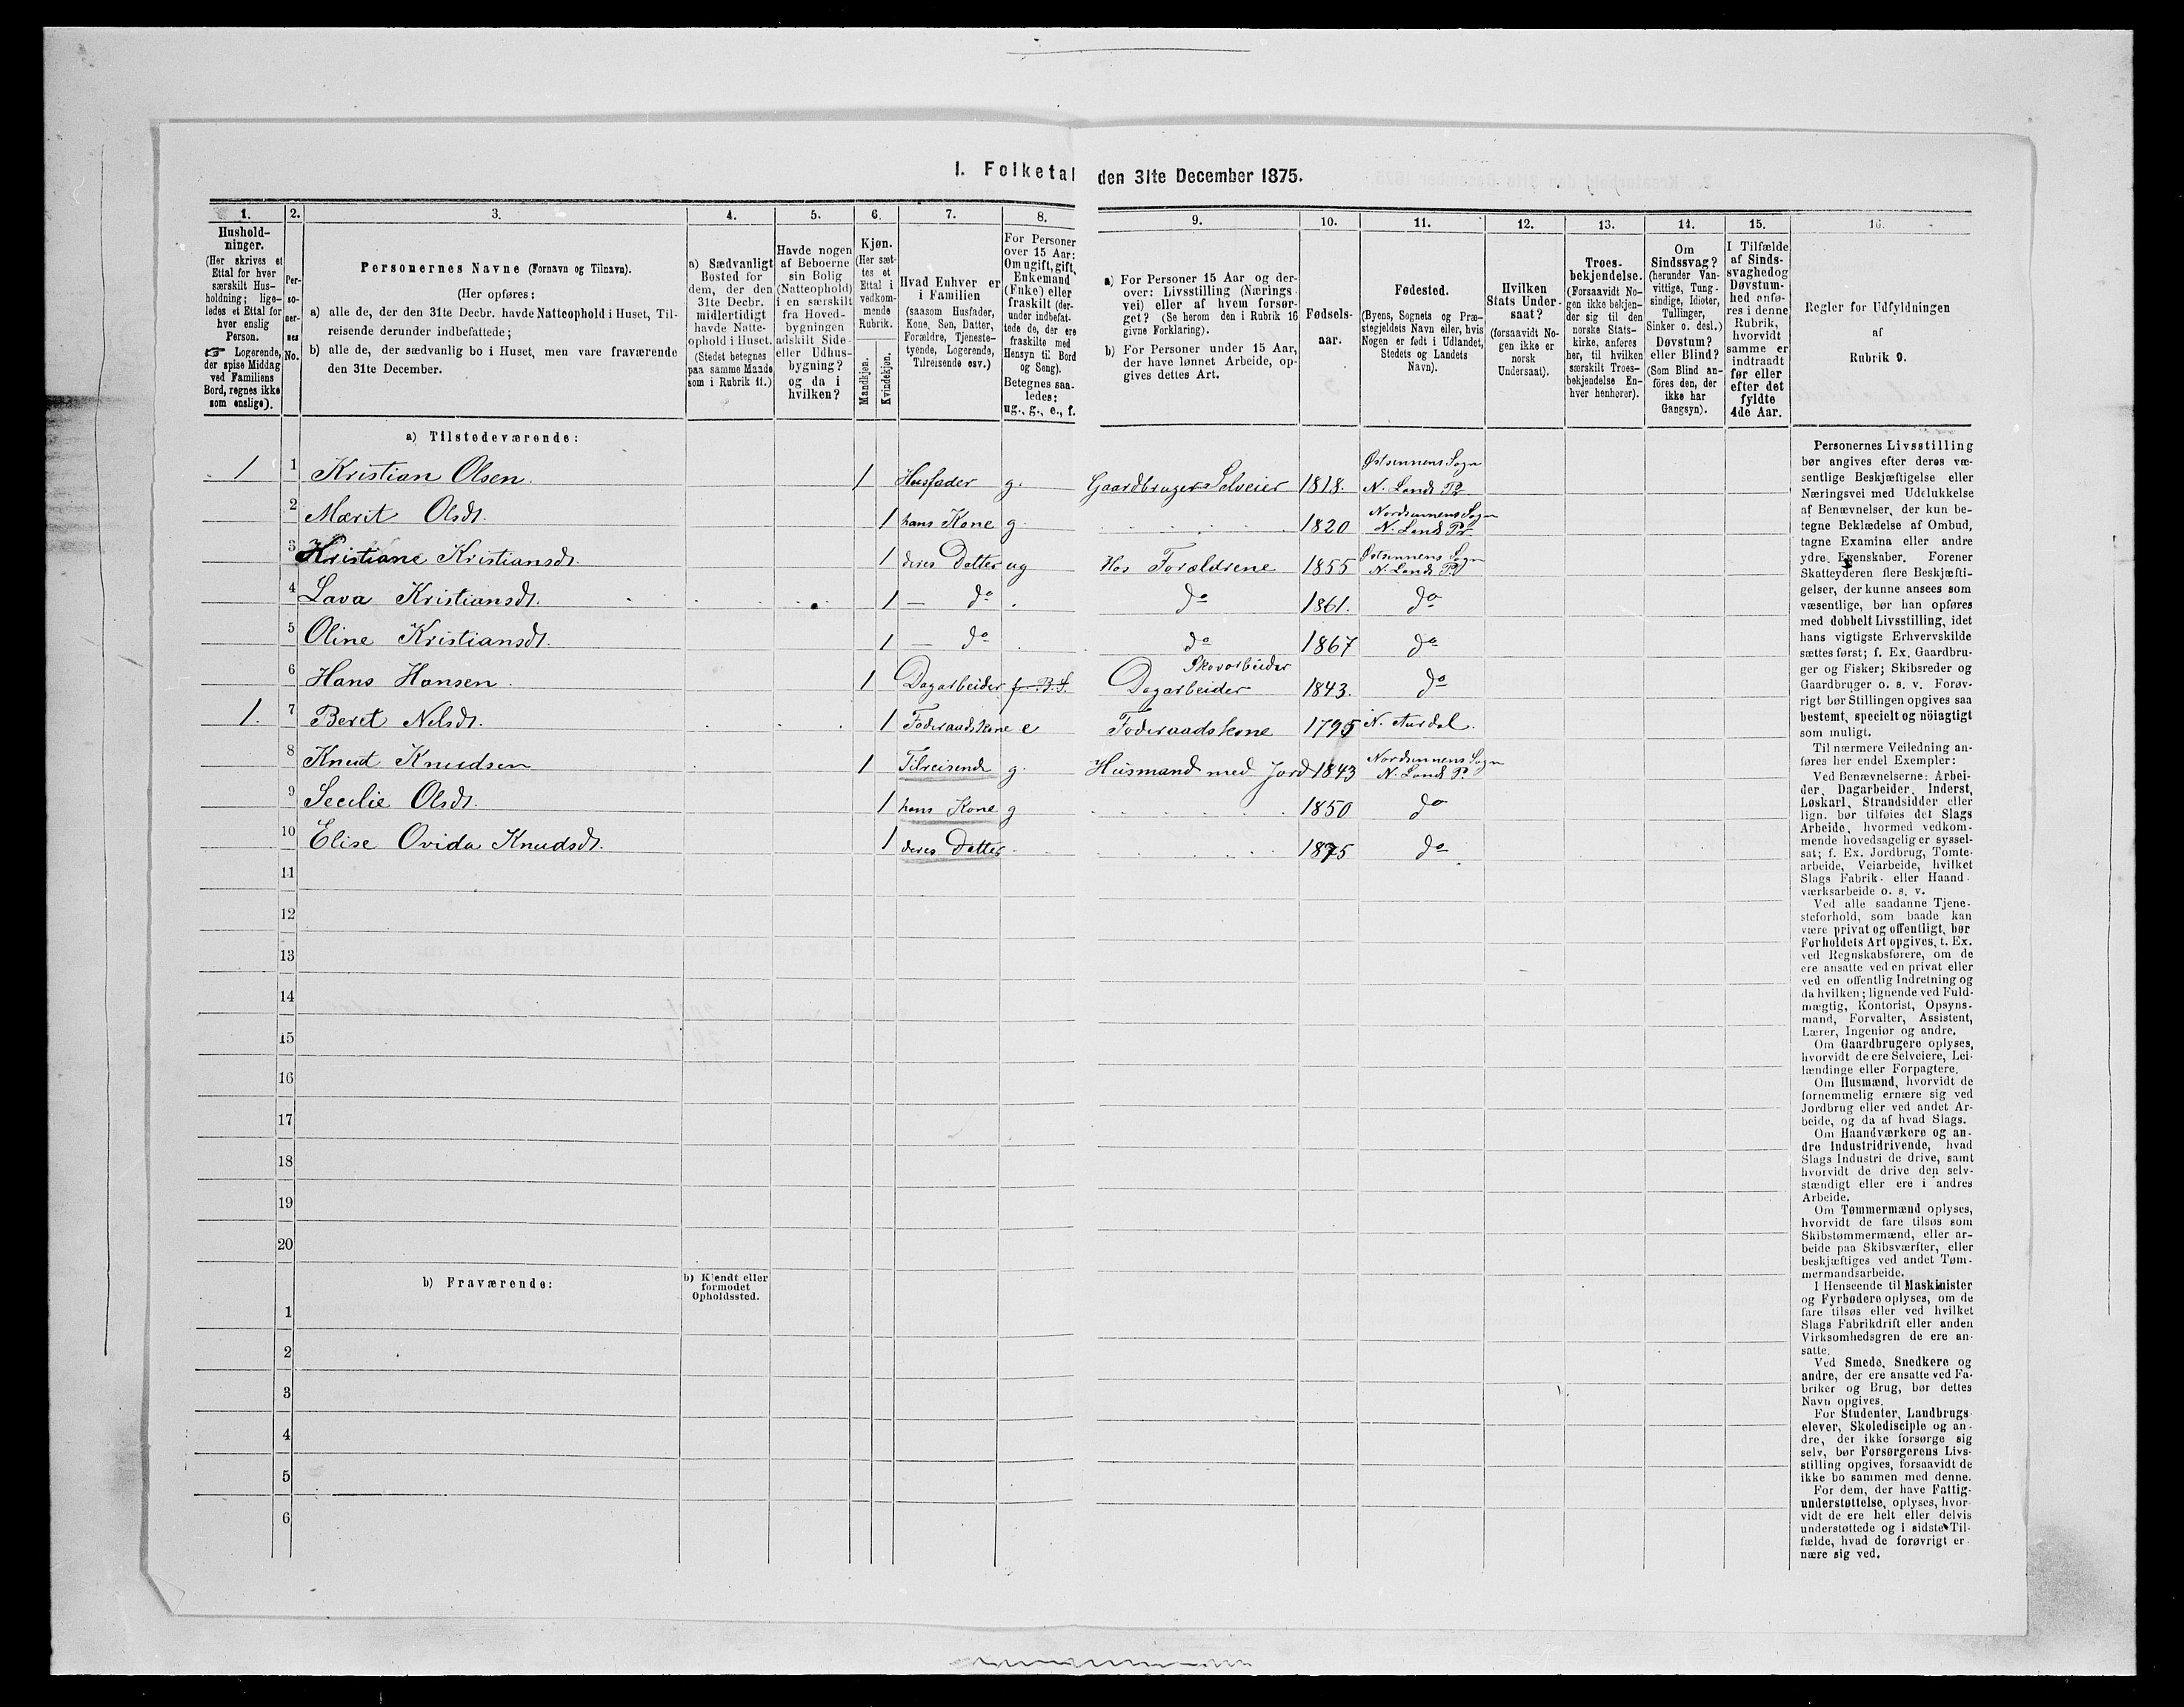 I. Folketal den 31te December 1875.
1. 2. 3. 4. 5. 6. 7. 8. 9. 10. 11. 12. 13. 14. 15. 16.
Hushold-
ninger.
(Her skrives et
Ettal for hver
særskilt Hus-
holdning; lige-
ledes et Ettal for
hver enslig
Person.
☞ Logerende,
der spise Middag
ved Familiens
Bord, regnes ikke
som enslige).
Per-
so-
ner-
nes
No.
Personernes Navne (Fornavn og Tilnavn).
(Her opføres:
a) alle de, der den 31te Decbr. havde Natteophold i Huset, Til-
reisende derunder indbefattede;
b) alle de, der sædvanlig bo i Huset, men vare fraværende
den 31te December.
a) Sædvanligt
Bosted for
dem, der den
31te Decbr.
midlertidigt
havde Natte-
ophold i Huset.
(Stedet betegnes
paa samme Maade
som i Rubrik 11.)
Havde nogen
af Beboerne
sin Bolig
(Natteophold)
i en særskilt
fra Hoved-
bygningen
adskilt Side-
eller Udhus-
bygning?
og da i
hvilken?
Kjøn.
(Her sæt-
tes et
Ettal i
vedkom-
mende
Rubrik.
Mandkjøn.
Kvindekjøn.
Hvad Enhver er
i Familien
(saasom Husfader,
Kone, Søn, Datter,
Forældre, Tjeneste-
tyende, Logerende,
Tilreisende osv.)
For Personer
over 15 Aar:
Om ugift, gift,
Enkemand
(Enke) eller
fraskilt (der-
under indbefat-
tede de, der ere
fraskilte med
Hensyn til Bord
og Seng).
Betegnes saa-
ledes:
ug., g., e., f.
a) For Personer 15 Aar og der-
over: Livsstilling (Nærings-
vei) eller af hvem forsør-
get? (Se herom den i Rubrik 16
givne Forklaring).
b) For Personer under 15 Aar,
der have lønnet Arbeide, op-
gives dettes Art.
Fødsels-
aar.
Fødested.
(Byens, Sognets og Præ-
stegjeldets Navn eller, hvis
Nogen er født i Udlandet,
Stedets og Landets
Navn).
Hvilken
Stats Under-
saat?
(forsaavidt No-
gen ikke er
norsk
Undersaat).
Troes-
bekjendelse.
(Forsaavidt No-
gen ikke bekjen-
der sig til den
norske Stats-
kirke, anføres
her, til hvilken
særskilt Troes-
bekjendelse En-
hver henhører).
Om
Sindssvag?
(herunder Van-
vittige, Tung-
sindige, Idioter,
Tullinger,
Sinker o. desl.)
Døvstum?
eller Blind?
(Som Blind an-
føres den, der
ikke har
Gangsyn).
I Tilfælde
af Sinds-
svaghed og
Døvstum-
hed anfø-
res i denne
Rubrik,
hvorvidt
samme er
indtraadt
før eller
efter det
fyldte
4de Aar.
Regler for Udfyldningen
af
Rubrik 9.
a) Tilstedeværende:
1 1 Kristian Olsen. 1 Husfader g. Gaardbruger Selveier 1818. Østsinnens Sogn N. Lands Pr
2 Marit Olsdt. 1 hans Kone g 1820 Nordsinnens Sogn N. Lands Pr.
3 Kristiane Kristiansdt. 1 deres Datter ug Hos Forældrene 1855 Østsinnens Sogn N. Lands Pr
4 Lava Kristiansdt. 1 — do do 1861. do
5 Oline Kristiansdt. 1 — do do 1867 do
6 Hans Hansen. 1 Dagarbeider Skovarbeider Dagarbeider 1843. do
1. 7 Beret Nelsdt. 1 Foderaadskone e Foderaadskone 1795 N. Aurdal.
8 Knud Knudsen 1 Tilreisende g. Husmand med Jord 1843 Nordsinnens Sogn N. Lands P.
9 Secilie Olsdt. 1 hans Kone g 1850 do
10 Elise Ovida Knudsdt. 1 deres Datter 1875 do
11
12
13
14
15
16
17
18
19
20
b) Fraværende:
b) Kjendt eller
formodet
Opholdssted.
1
2
3
4
5
6
Personernes Livsstilling
bør angives efter deres væ-
sentlige Beskjæftigelse eller
Næringsvei med Udelukkelse
af Benævnelser, der kun be-
tegne Beklædelse af Ombud,
tagne Examina eller andre
ydre Egenskaber. Forener
Skatteyderen flere Beskjæfti-
gelser, der kunne ansees som
væsentlige, bør han opføres
med dobbelt Livsstilling, idet
hans vigtigste Erhvervskilde
sættes først; f. Ex. Gaardbru-
ger og Fisker; Skibsreder og
Gaardbruger o. s. v. Forøv-
rigt bør Stillingen opgives saa
bestemt, specielt og nöiagtigt
som muligt.
Til nærmere Veiledning an-
føres her endel Exempler:
Ved Benævnelserne: Arbei-
der, Dagarbeider, Inderst,
Løskarl, Strandsidder eller
lign. bør tilføies det Slags
Arbeide, hvormed vedkom-
mende hovedsagelig er syssel-
sat; f. Ex. Jordbrug, Tomte-
arbeide, Veiarbeide, hvilket
Slags Fabrik- eller Haand-
værksarbeide o. s. v.
Ved alle saadanne Tjene-
steforhold, som baade kan
være privat og offentligt, bør
Forholdets Art opgives, t. Ex.
ved Regnskabsførere, om de
ere ansatte ved en privat eller
ved en offentlig Indretning og
da hvilken; lignende ved Fuld-
mægtig, Kontorist, Opsyns-
mand, Forvalter, Assistent,
Lærer, Ingeniør og andre.
Om Gaardbrugere oplyses,
hvorvidt de ere Selveiere, Lei-
lændinge eller Forpagtere.
Om Husmænd, hvorvidt de
fornemmelig ernære sig ved
Jordbrug eller ved andet Ar-
beide, og da af hvad Slags.
Om Haandværkere og an-
dre Industridrivende, hvad
Slags Industri de drive, samt
hvorvidt de drive den selv-
stændigt eller ere i andres
Arbeide.
Om Tømmermænd oplyses,
hvorvidt de fare tilsøs som
Skibstømmermænd, eller ar-
beide paa Skibsværfter, eller
beskjæftiges ved andet Tøm-
mermandsarbeide.
I Henseende til Maskinister
og Fyrbødere oplyses, om de
fare tilsøs eller ved hvilket
Slags Fabrikdrift eller anden
Virksomhedsgren de ere an-
satte.
Ved Smede, Snedkere og
andre, der ere ansatte ved Fa-
briker og Brug, bør dettes
Navn opgives.
For Studenter, Landbrugs-
elever, Skoledisciple og an-
dre, der ikke forsørge sig
selv, bør Forsørgerens Livs-
stilling opgives, forsaavidt de
ikke bo sammen med denne.
For dem, der have Fattig-
understøttelse, oplyses, hvor-
vidt de ere helt eller delvis
understøttede og i sidste Til-
fælde, hvad de forøvrigt er-
nære sig ved.